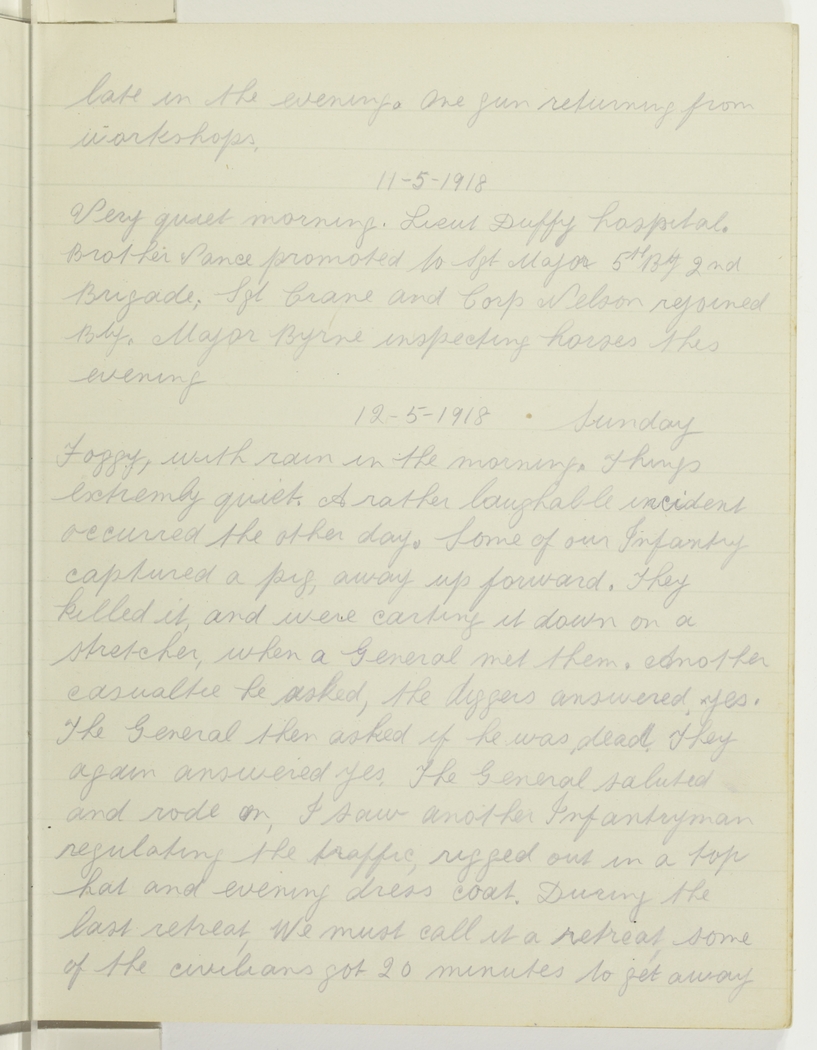 late in the evening. One gun returning from
workshops.
11-5-1918
Very quiet morning. Lieut Duffy hospital.
Brother Vance promoted to Sgt Major 5th Bty 2nd
Brigade; Sgt Crane and Corp Nelson rejoined
Bty. Major Byrne inspecting horses this
evening
12-5-1918 Sunday
Foggy, with rain in the morning. Things
extremly quiet. A rather laughable incident
occurred the other day. Some of our Infantry
captured a pig, away up forward. They
killed it, and were carting it down on a
stretcher, when a General met them. Another
casualtie he asked, the diggers answered yes.
The General then asked if he was dead. They
again answered yes. The General saluted
and rode on, I saw another Infantryman
regulating the traffic, rigged out in a top
hat and evening dress coat. During the
last retreat, We must call it a retreat, some
of the civilians got 20 minutes to get away